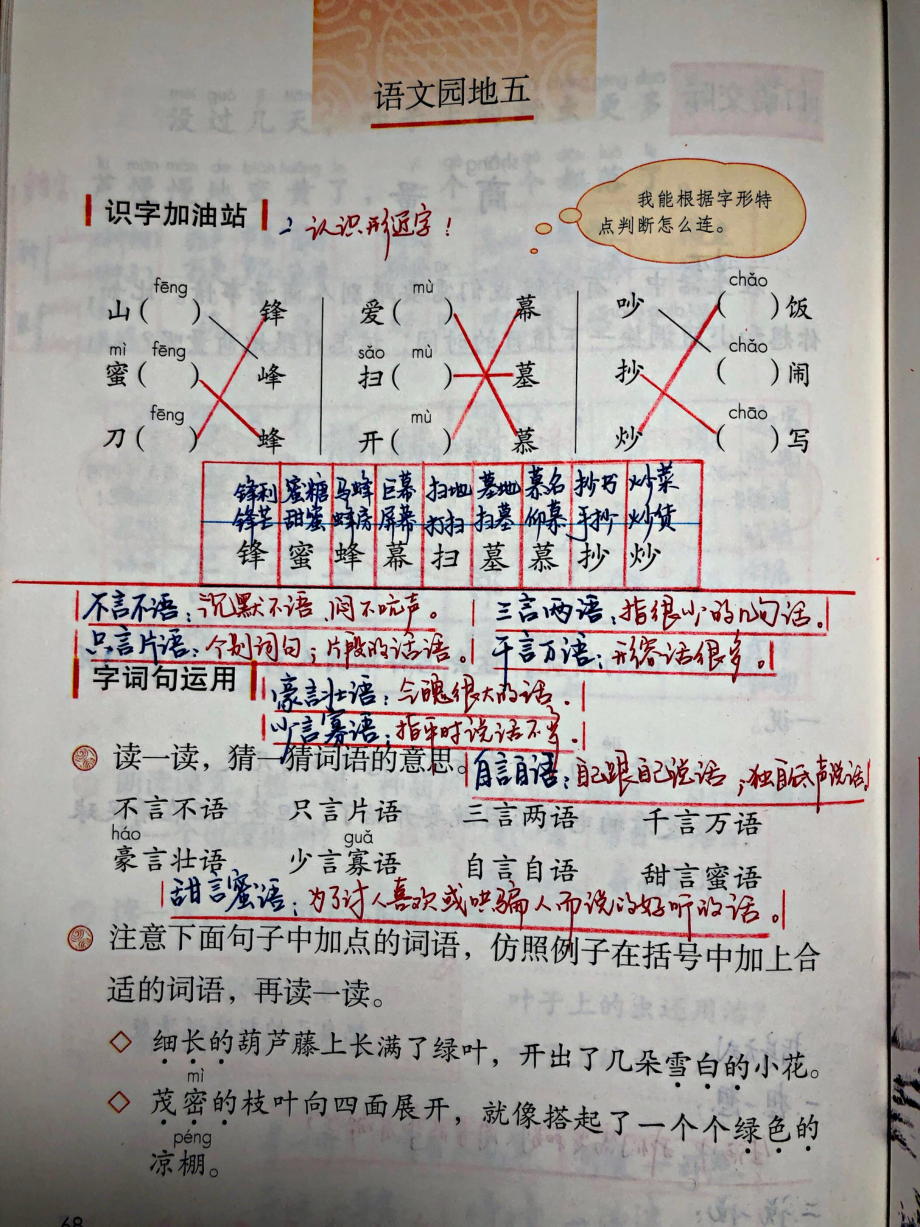 语文园地五
识字加油站
2 认识形近字！
我能根据字形特
点判断怎么连。
fēng mù chǎo
山( ) 锋 爱( ) 幕 吵 ( )饭
mì fēng sǎo mù chǎo
蜜( ) 峰 扫( ) 墓 抄 ( )闹
fēng mù chāo
刀( ) 蜂 开( ) 慕 炒 ( )写
锋利 蜜糖 马蜂 巨幕 扫地 墓地 慕名 抄写 炒菜
锋芒 甜蜜 蜂房 屏幕 打扫 扫墓 仰慕 手抄 炒货
锋 蜜 蜂 幕 扫 墓 慕 抄 炒
不言不语：沉默不语，闷不吭声。
三言两语：指很少的几句话。
只言片语：个别词句；片段的话语。
千言万语：形容话很多。
字词句运用
豪言壮语：气魄很大的话。
少言寡语：指平时说话不多。
读一读，猜一猜词语的意思。
自言自语：自己跟自己说话；独自低声说话。
不言不语 只言片语 三言两语 千言万语
háo guǎ
豪言壮语 少言寡语 自言自语 甜言蜜语
甜言蜜语：为了讨人喜欢或哄骗人而说的好听的话。
注意下面句子中加点的词语，仿照例子在括号中加上合
适的词语，再读一读。
◇ 细长的葫芦藤上长满了绿叶，开出了几朵雪白的小花。
mì
◇ 茂密的枝叶向四面展开，就像搭起了一个个绿色的
péng
凉棚。
68